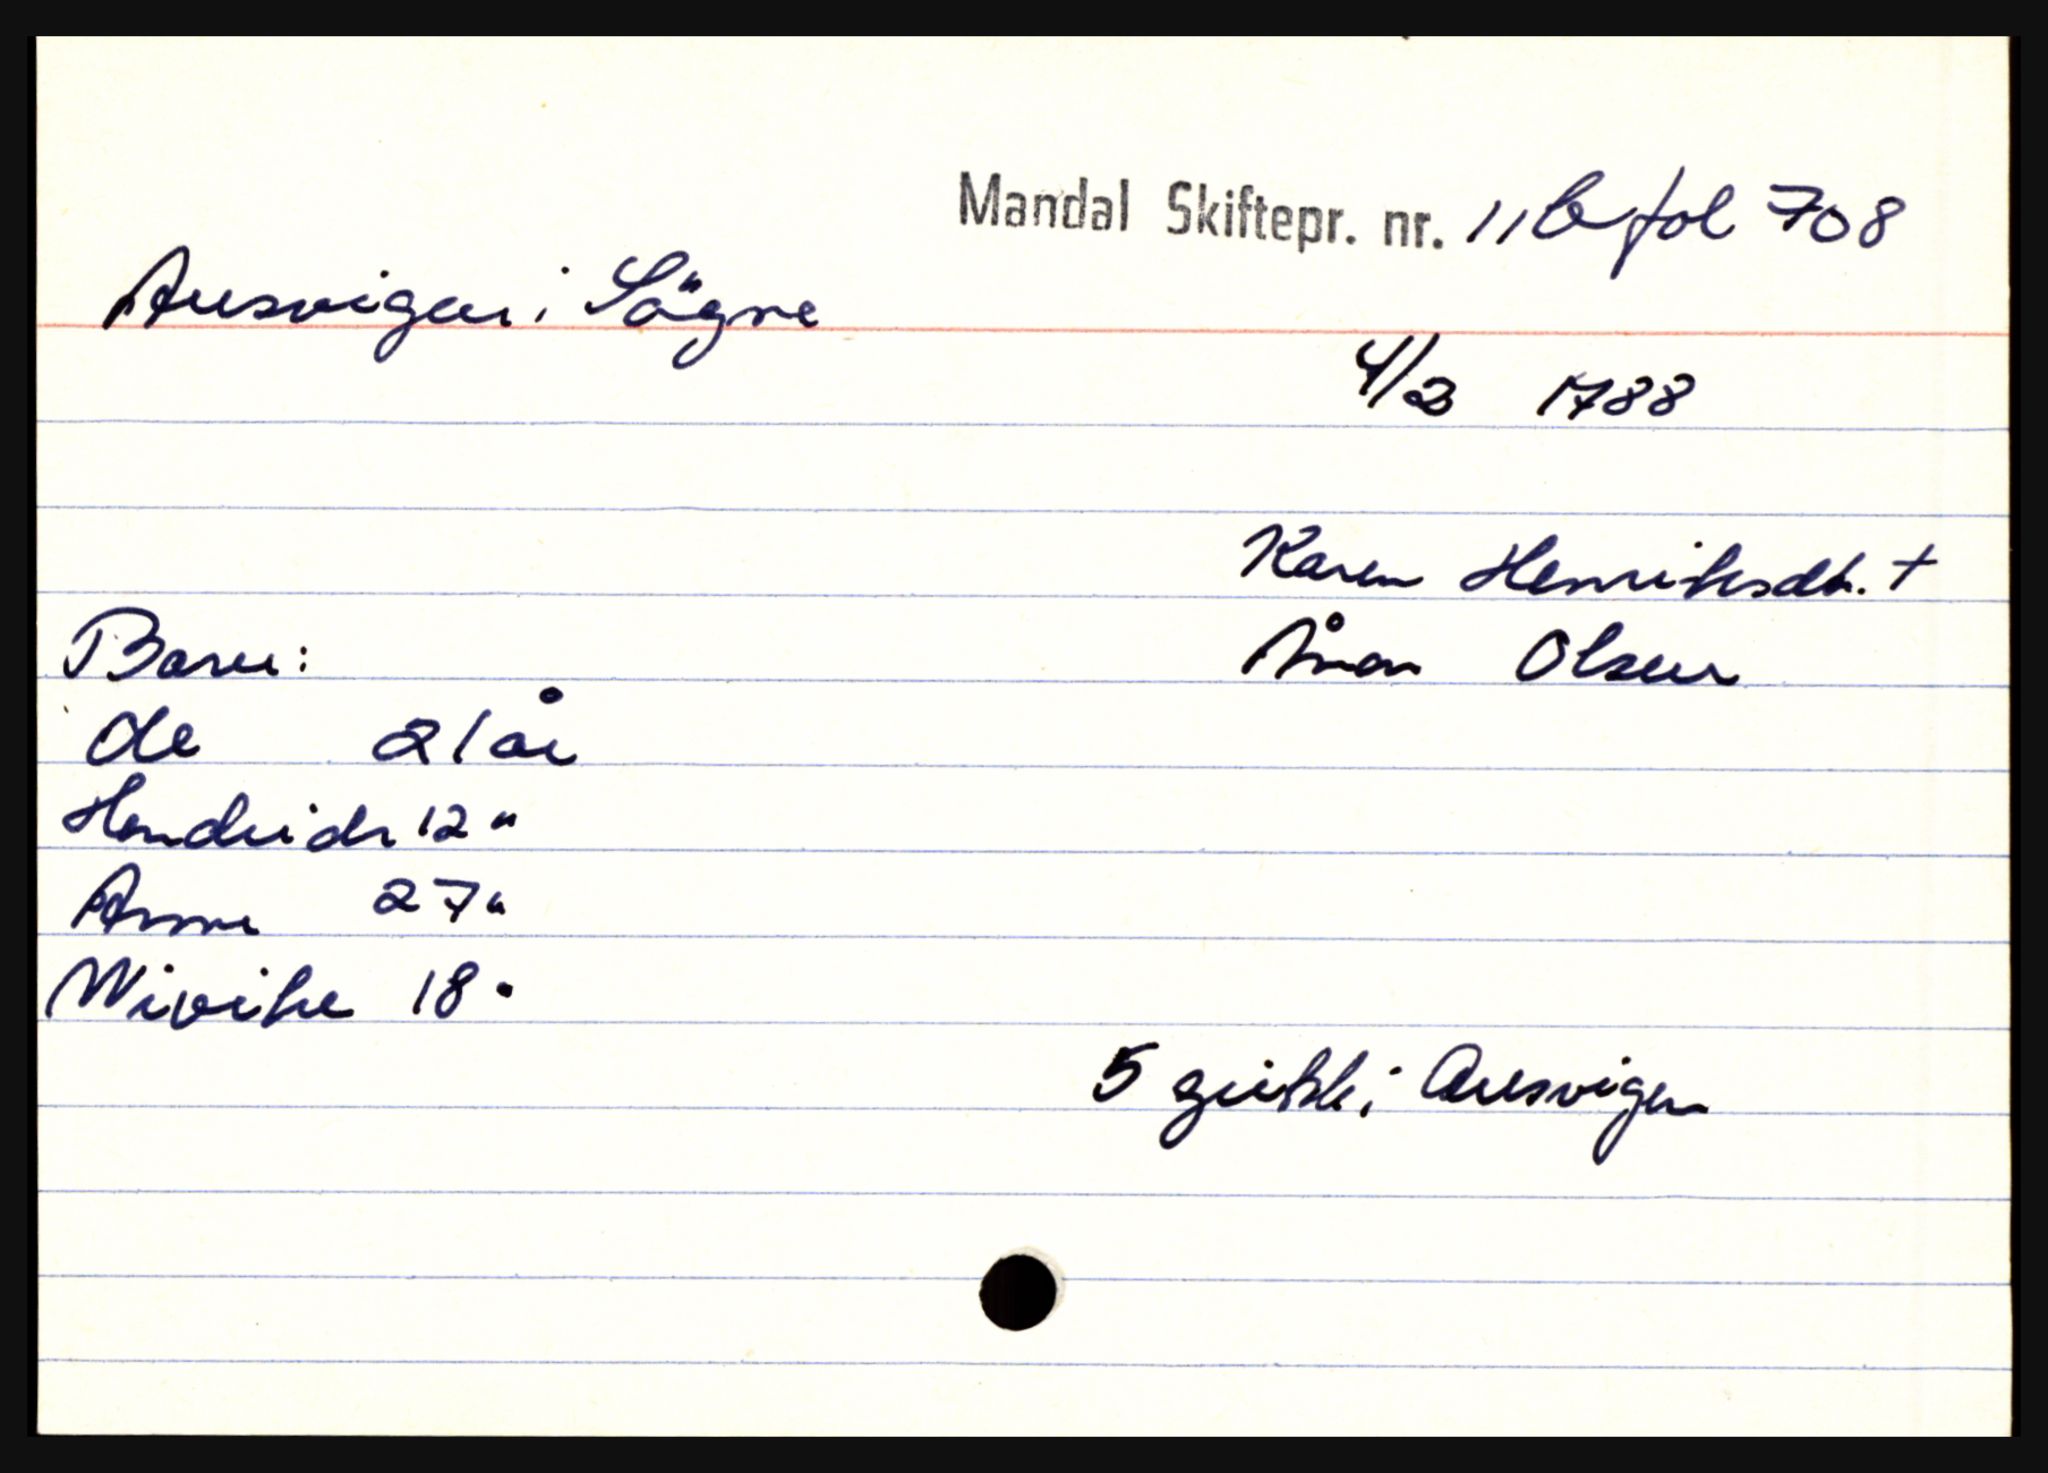 Mandal Skiftepr. nr. 11b fol 708
Aresvigen i Sögne
4/2 1788
Karen Henriksdtr. +
Ånon Olsen
Barn:
Ole 21 år
Hendrich 12 "
Anne 27 "
Wivike 18 "
5 i Aresvigen